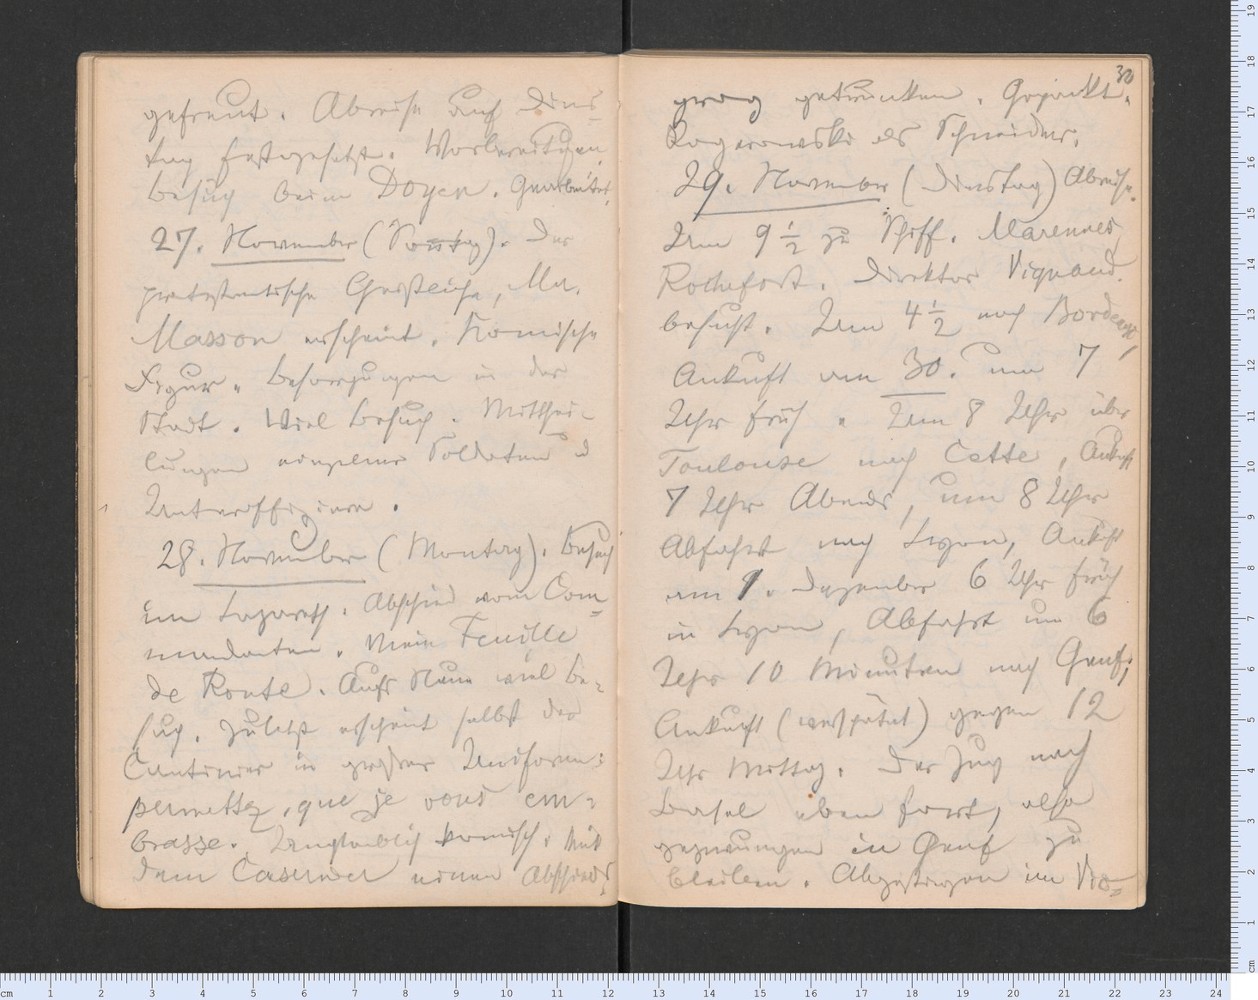 gefreut. Abreise auf Diens-
tag festgesetzt. Vorbereitungen.
Besuch beim Doyen. Gearbeitet.
27. November (Sonntag). Der
protestantische Geistliche, Mr.
Masson erscheint. Komische
Figur. Besorgungen in der
Stadt. Viel Besuch. Mitthei-
lungen einzelner Soldaten u
Unteroffiziere.
28. November (Montag). Besuch
im Lazareth. Abschied vom Com-
mandanten. Mein Feuille
de Route. Aufs Neue viel Be-
such. Zuletzt erscheint selbst der
Cantinier in großer Uniform:
permettez, que je vous em-
brasse. Unglaublich komisch. Mit
dem Casernier einen Abschieds-
30
grog getrunken. Gepackt.
Rogerowski als Schneider.
29. November (Dienstag) Abreise.
Um 9 1/2 zu Schiff. Marennes,
Rochefort. Direktor Vignaud
besucht. Um 4 1/2 nach Bordeaux,
Ankuft am 30. um 7
Uhr früh. Um 8 Uhr über
Toulouse nach Cette, Ankuft
7 Uhr Abends, um 8 Uhr
Abfahrt nach Lyon, Ankuft
am 1. Dezember 6 Uhr früh
in Lyon, Abfahrt um 6
Uhr 10 Minuten nach Genf;
Ankunft (verspätet) gegen 12
Uhr Mittag. Der Zug nach
Basel eben fort, also
gezwungen in Genf zu
bleiben. Abgestiegen im Vic-